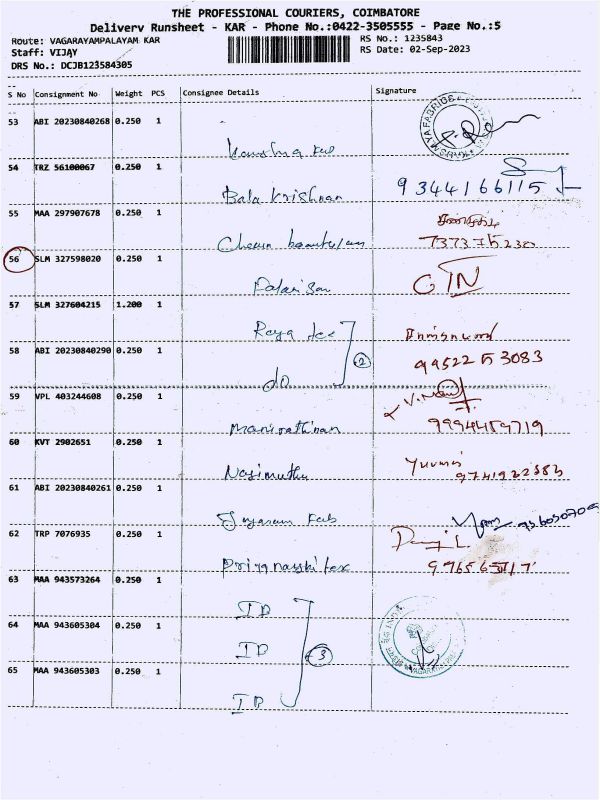 THE PROFESSIONAL COURIERS, COIMBATORE
Delivery Runsheet - KAR - Phone No.:0422-3505555 - Page No.:5
Route: VAGARAYAMPALAYAM KAR RS No.: 1235843
Staff: VIJAY RS Date: 02-Sep-2023
DRS No.: DCJB123584305
S No Consignment No Weight PCS Consignee Details Signature
53 ABI 20230840268 0.250 1
54 TRZ 56100067 0.250 1
Bala Krishnan 9344166115
55 MAA 297907678 0.250 1
737375230
56 SLM 327598020 0.250 1
GTN
57 SLM 327604215 1.200 1
Raya tex
58 ABI 20230840290 0.250 1
2
do 99522 53083
59 VPL 403244608 0.250 1
Manirathinan 9994459719
60 KVT 2902651 0.250 1
Nasimuthu 9741922383
61 ABI 20230840261 0.250 1
Jayaram Fab
62 TRP 7076935 0.250 1
Priyanayshi tex
63 MAA 943573264 0.250 1
ID
64 MAA 943605304 0.250 1
ID 3
65 MAA 943605303 0.250 1
ID